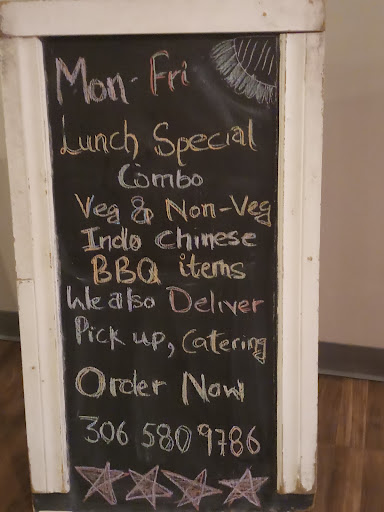 Mon-Fri
Lunch Special
Combo
Veg & Non-Veg
Indo Chinese
BBQ items
We also Deliver
Pick up, Catering
Order Now
306 580 9786